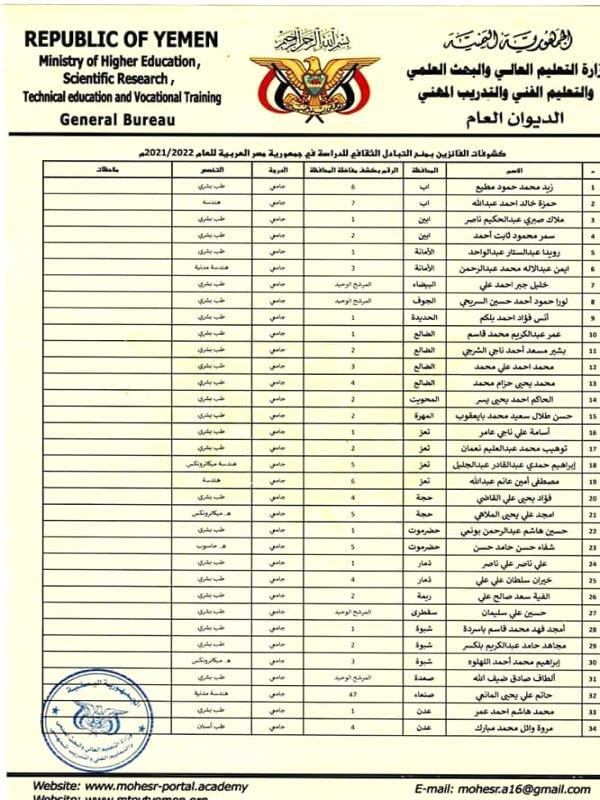 REPUBLIC OF YEMEN
Ministry of Higher Education,
Scientific Research,
Technical education and Vocational Training
General Bureau
بسم الله الرحمن الرحيم
الجمهورية اليمنية
وزارة التعليم العالي والبحث العلمي
والتعليم الفني والتدريب المهني
الديوان العام
كشوفات الفائزين بمنح التبادل الثقافي للدراسة في جمهورية مصر العربية للعام 2021/2022م
م الاسم المحافظة الرقم بكشف مفاضلة المحافظة الدرجة التخصص ملاحظات
1 زيد محمد حمود مطيع اب 6 جامعي طب بشري
2 حمزة خالد احمد عبدالله اب 7 جامعي هندسة
3 ملاك صبري عبدالحكيم ناصر ابين 1 جامعي طب بشري
4 سمر محمود ثابت أحمد ابين 2 جامعي طب بشري
5 رويدا عبدالستار عبدالواحد الأمانة 1 جامعي طب بشري
6 ايمن عبدالاله محمد عبدالرحمن الأمانة 3 جامعي هندسة مدنية
7 خليل جبر احمد علي البيضاء المرشح الوحيد جامعي طب بشري
8 لورا حمود أحمد حسين السريحي الجوف المرشح الوحيد جامعي طب بشري
9 أنس فؤاد احمد بلكم الحديدة 1 جامعي طب بشري
10 عمر عبدالكريم محمد قاسم الضالع 1 جامعي طب بشري
11 بشير مسعد أحمد ناجي الشرجي الضالع 2 جامعي طب بشري
12 محمد احمد علي محمد الضالع 3 جامعي طب بشري
13 محمد يحيى حزام محمد الضالع 4 جامعي طب بشري
14 الحاكم احمد يحيى يسر المحويت 2 جامعي طب بشري
15 حسن طلال سعيد محمد بايعقوب المهرة 2 جامعي طب بشري
16 أسامة علي ناجي عامر تعز 1 جامعي طب بشري
17 توهيب محمد عبدالعليم نعمان تعز 2 جامعي طب بشري
18 إبراهيم حمدي عبدالقادر عبدالجليل تعز 5 جامعي هندسة ميكاترونكس
19 مصطفى أمين غانم عبدالله تعز 6 جامعي هندسة
20 فؤاد يحيى علي القاضي حجة 4 جامعي طب بشري
21 امجد علي يحيى الملاهي حجة 5 جامعي هـ. ميكاترونكس
22 حسين هاشم عبدالرحمن بونمي حضرموت 1 جامعي طب بشري
23 شفاء حسن حامد حسن حضرموت 5 جامعي هـ. حاسوب
24 علي ناصر علي ناصر ذمار 1 جامعي طب بشري
25 خيران سلطان علي علي ذمار 4 جامعي طب بشري
26 الفية سعد صالح علي ريمة 2 جامعي طب بشري
27 حسين علي سليمان سقطرى المرشح الوحيد جامعي طب بشري
28 أمجد فهد محمد قاسم باسردة شبوة 1 جامعي طب بشري
29 مجاهد حامد عبدالكريم بلكسر شبوة 2 جامعي طب بشري
30 إبراهيم محمد أحمد اللهلوه شبوة 3 جامعي هـ. ميكاترونكس
31 ألطاف صادق ضيف الله صعدة المرشح الوحيد جامعي طب بشري
32 حاتم علي يحيى الماني صنعاء 47 جامعي هندسة مدنية
33 محمد هاشم احمد عمر عدن 1 جامعي طب بشري
34 مروة وائل محمد مبارك عدن 4 جامعي طب أسنان
الجمهورية اليمنية
Website: www.mohesr-portal.academy
E-mail: mohesr.a16@gmail.com